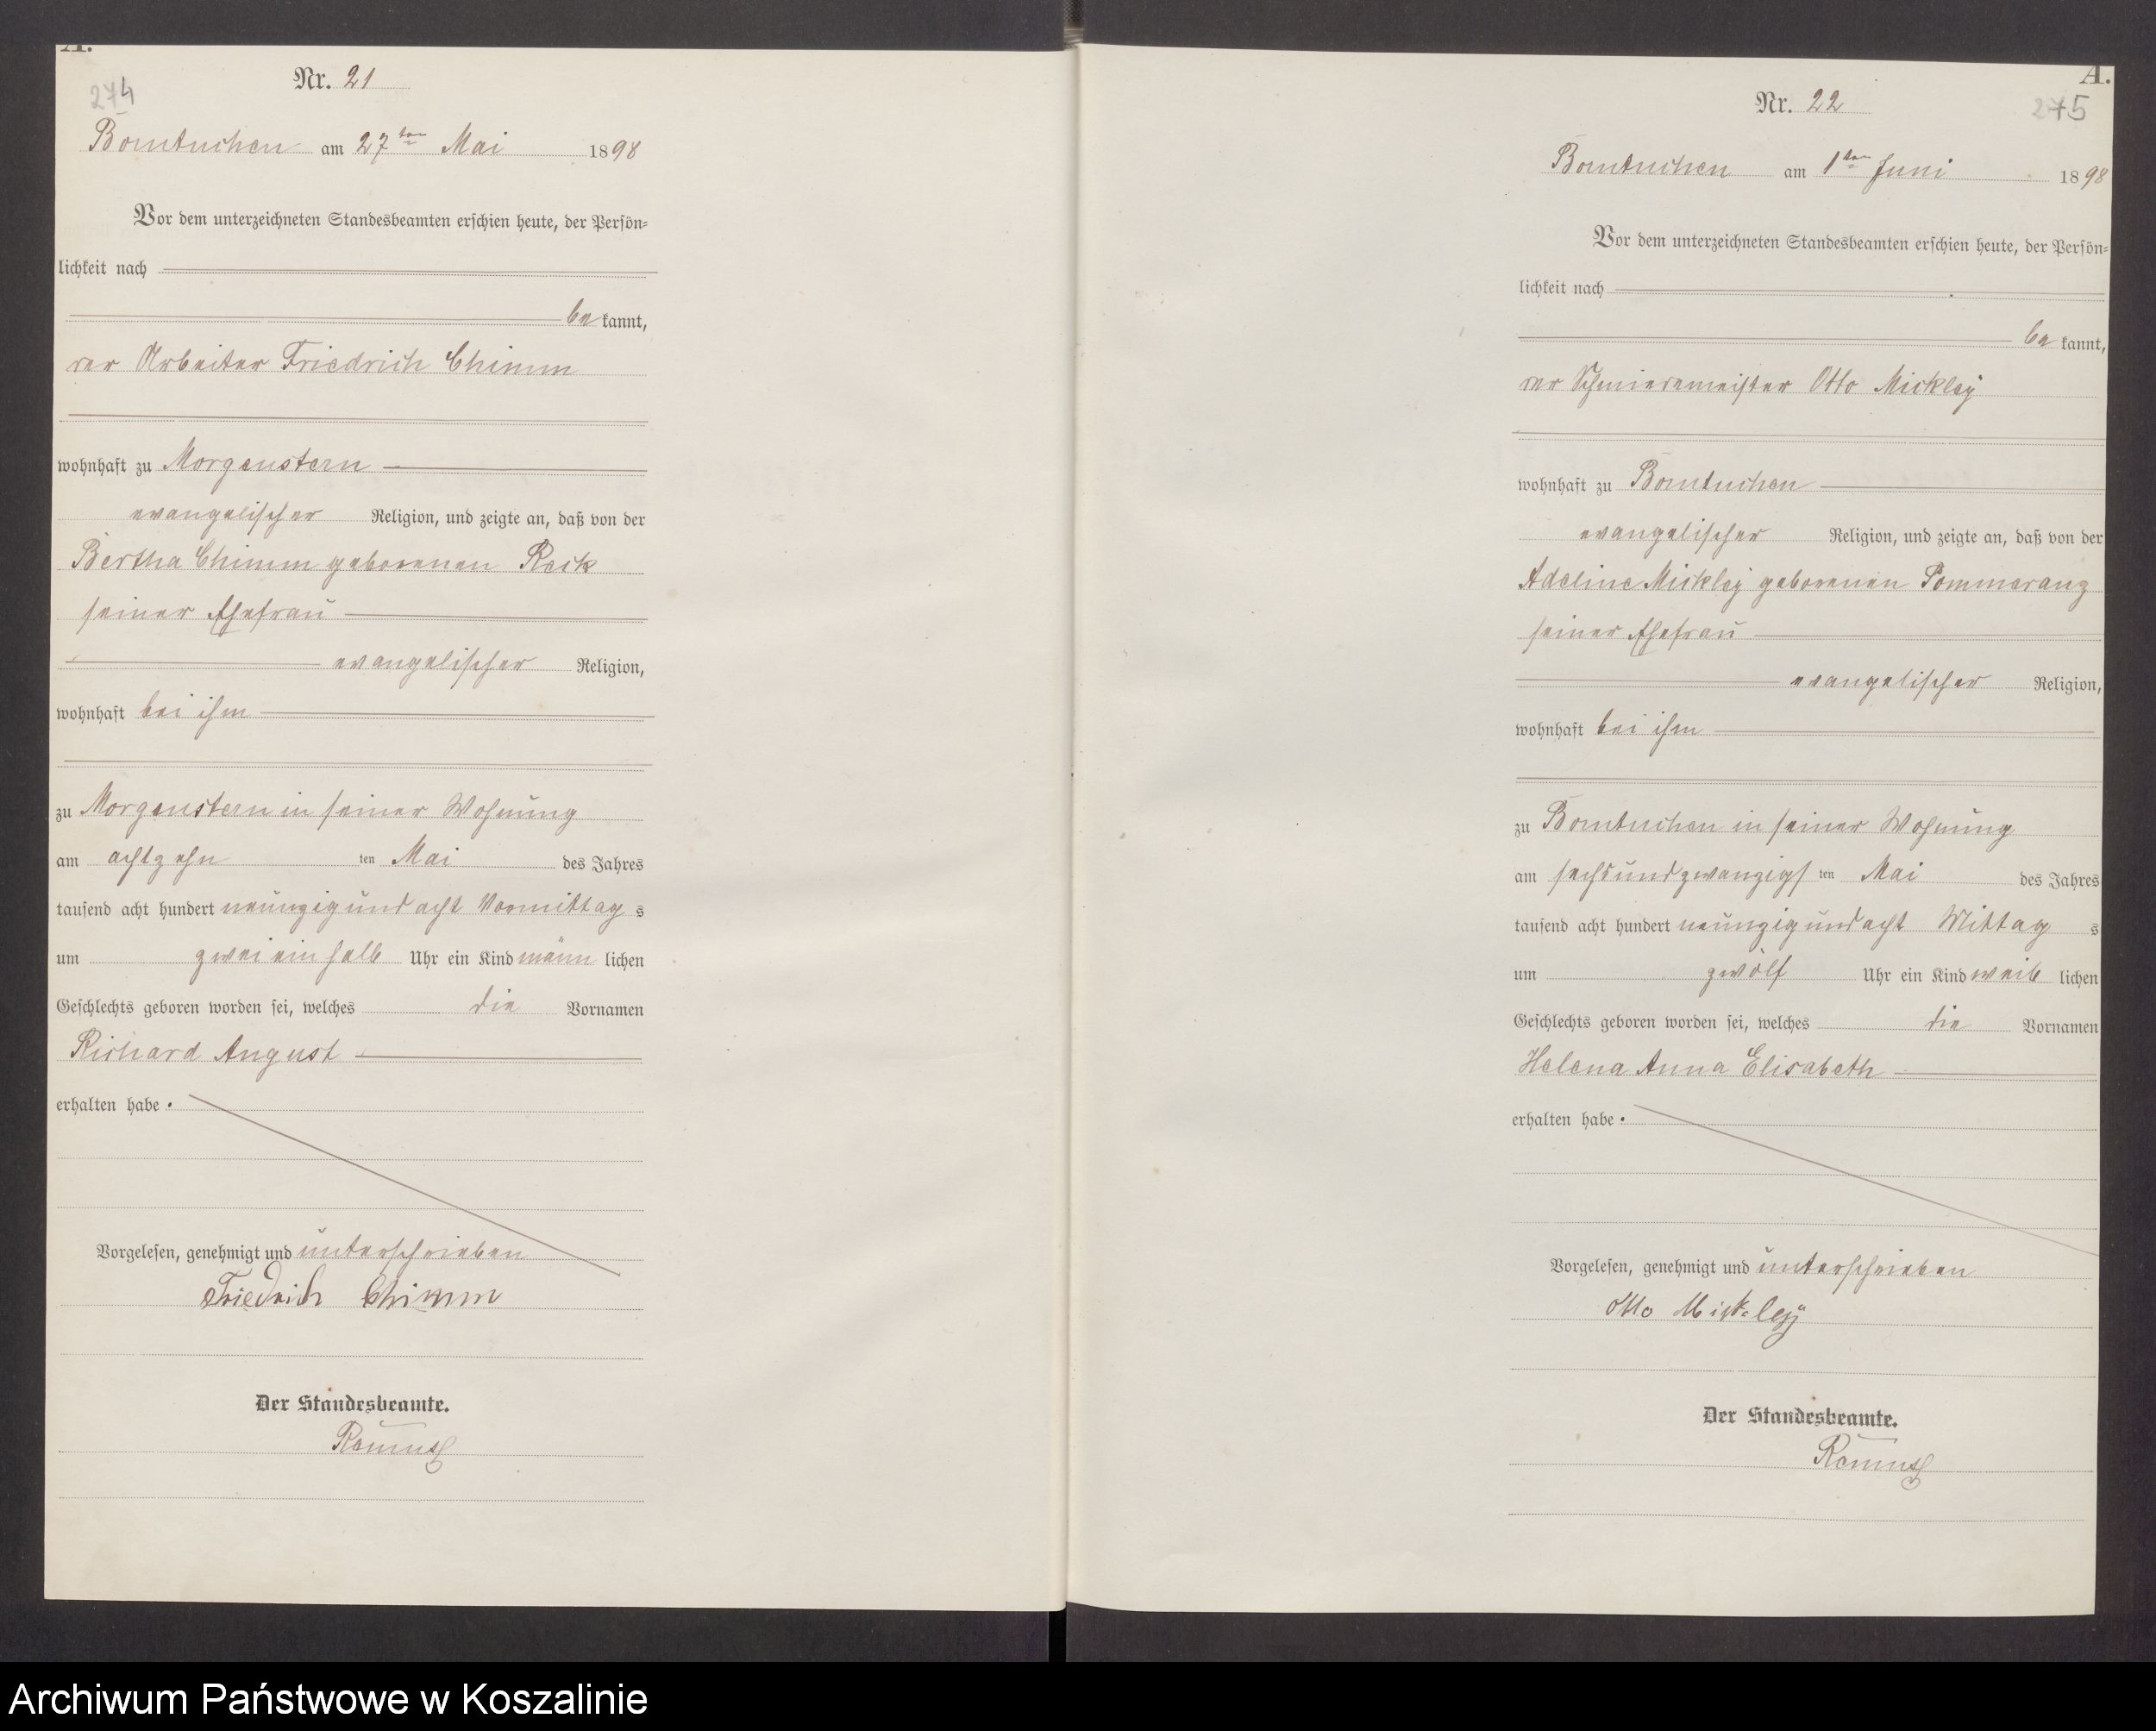 A.
274
Nr. 21
Borntuchen am 27ten Mai 1898
Vor dem unterzeichneten Standesbeamten erschien heute, der Persön-
lichkeit nach
be kannt,
der Arbeiter Friedrich Chimm
wohnhaft zu Morgenstern
evangelischer Religion, und zeigte an, daß von der
Bertha Chimm geborenen Reck
seiner Ehefrau
evangelischer Religion,
wohnhaft bei ihm
zu Morgenstern in seiner Wohnung
am achtzehn ten Mai des Jahres
tausend acht hundert neunzig und acht Vormittag s
um zwei ein halb Uhr ein Kind männ lichen
Geschlechts geboren worden sei, welches die Vornamen
Richard August
erhalten habe.
Vorgelesen, genehmigt und unterschrieben
Friedrich Chimm
Der Standesbeamte.
A.
275
Nr. 22
Borntuchen am 1ten Juni 1898
Vor dem unterzeichneten Standesbeamten erschien heute, der Persön-
lichkeit nach
be kannt,
der Schmiedemeister Otto Mickley
wohnhaft zu Borntuchen
evangelischer Religion, und zeigte an, daß von der
Adeline Mickley geborenen Pommeranz
seiner Ehefrau
evangelischer Religion,
wohnhaft bei ihm
zu Borntuchen in seiner Wohnung
am sechsundzwanzigs ten Mai des Jahres
tausend acht hundert neunzig und acht Mittag s
um zwölf Uhr ein Kind weib lichen
Geschlechts geboren worden sei, welches die Vornamen
Helena Anna Elisabeth
erhalten habe.
Vorgelesen, genehmigt und unterschrieben
Otto Mickley
Der Standesbeamte.
Archiwum Państwowe w Koszalinie